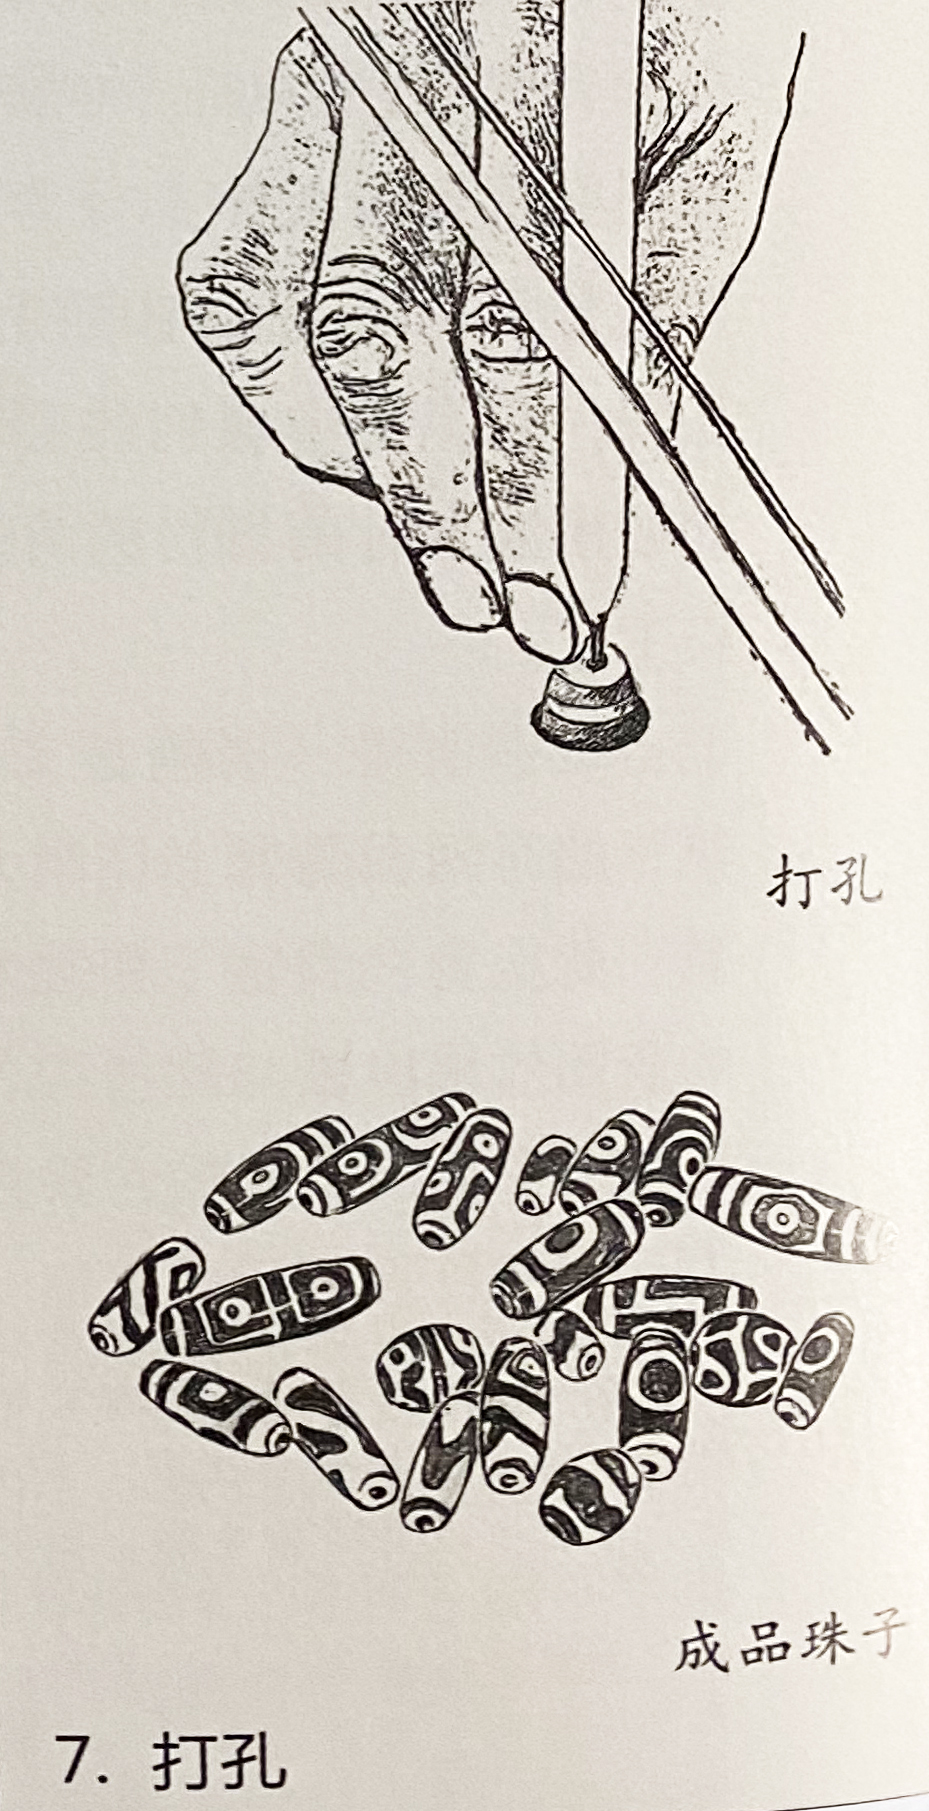 打孔
成品珠子
7. 打孔